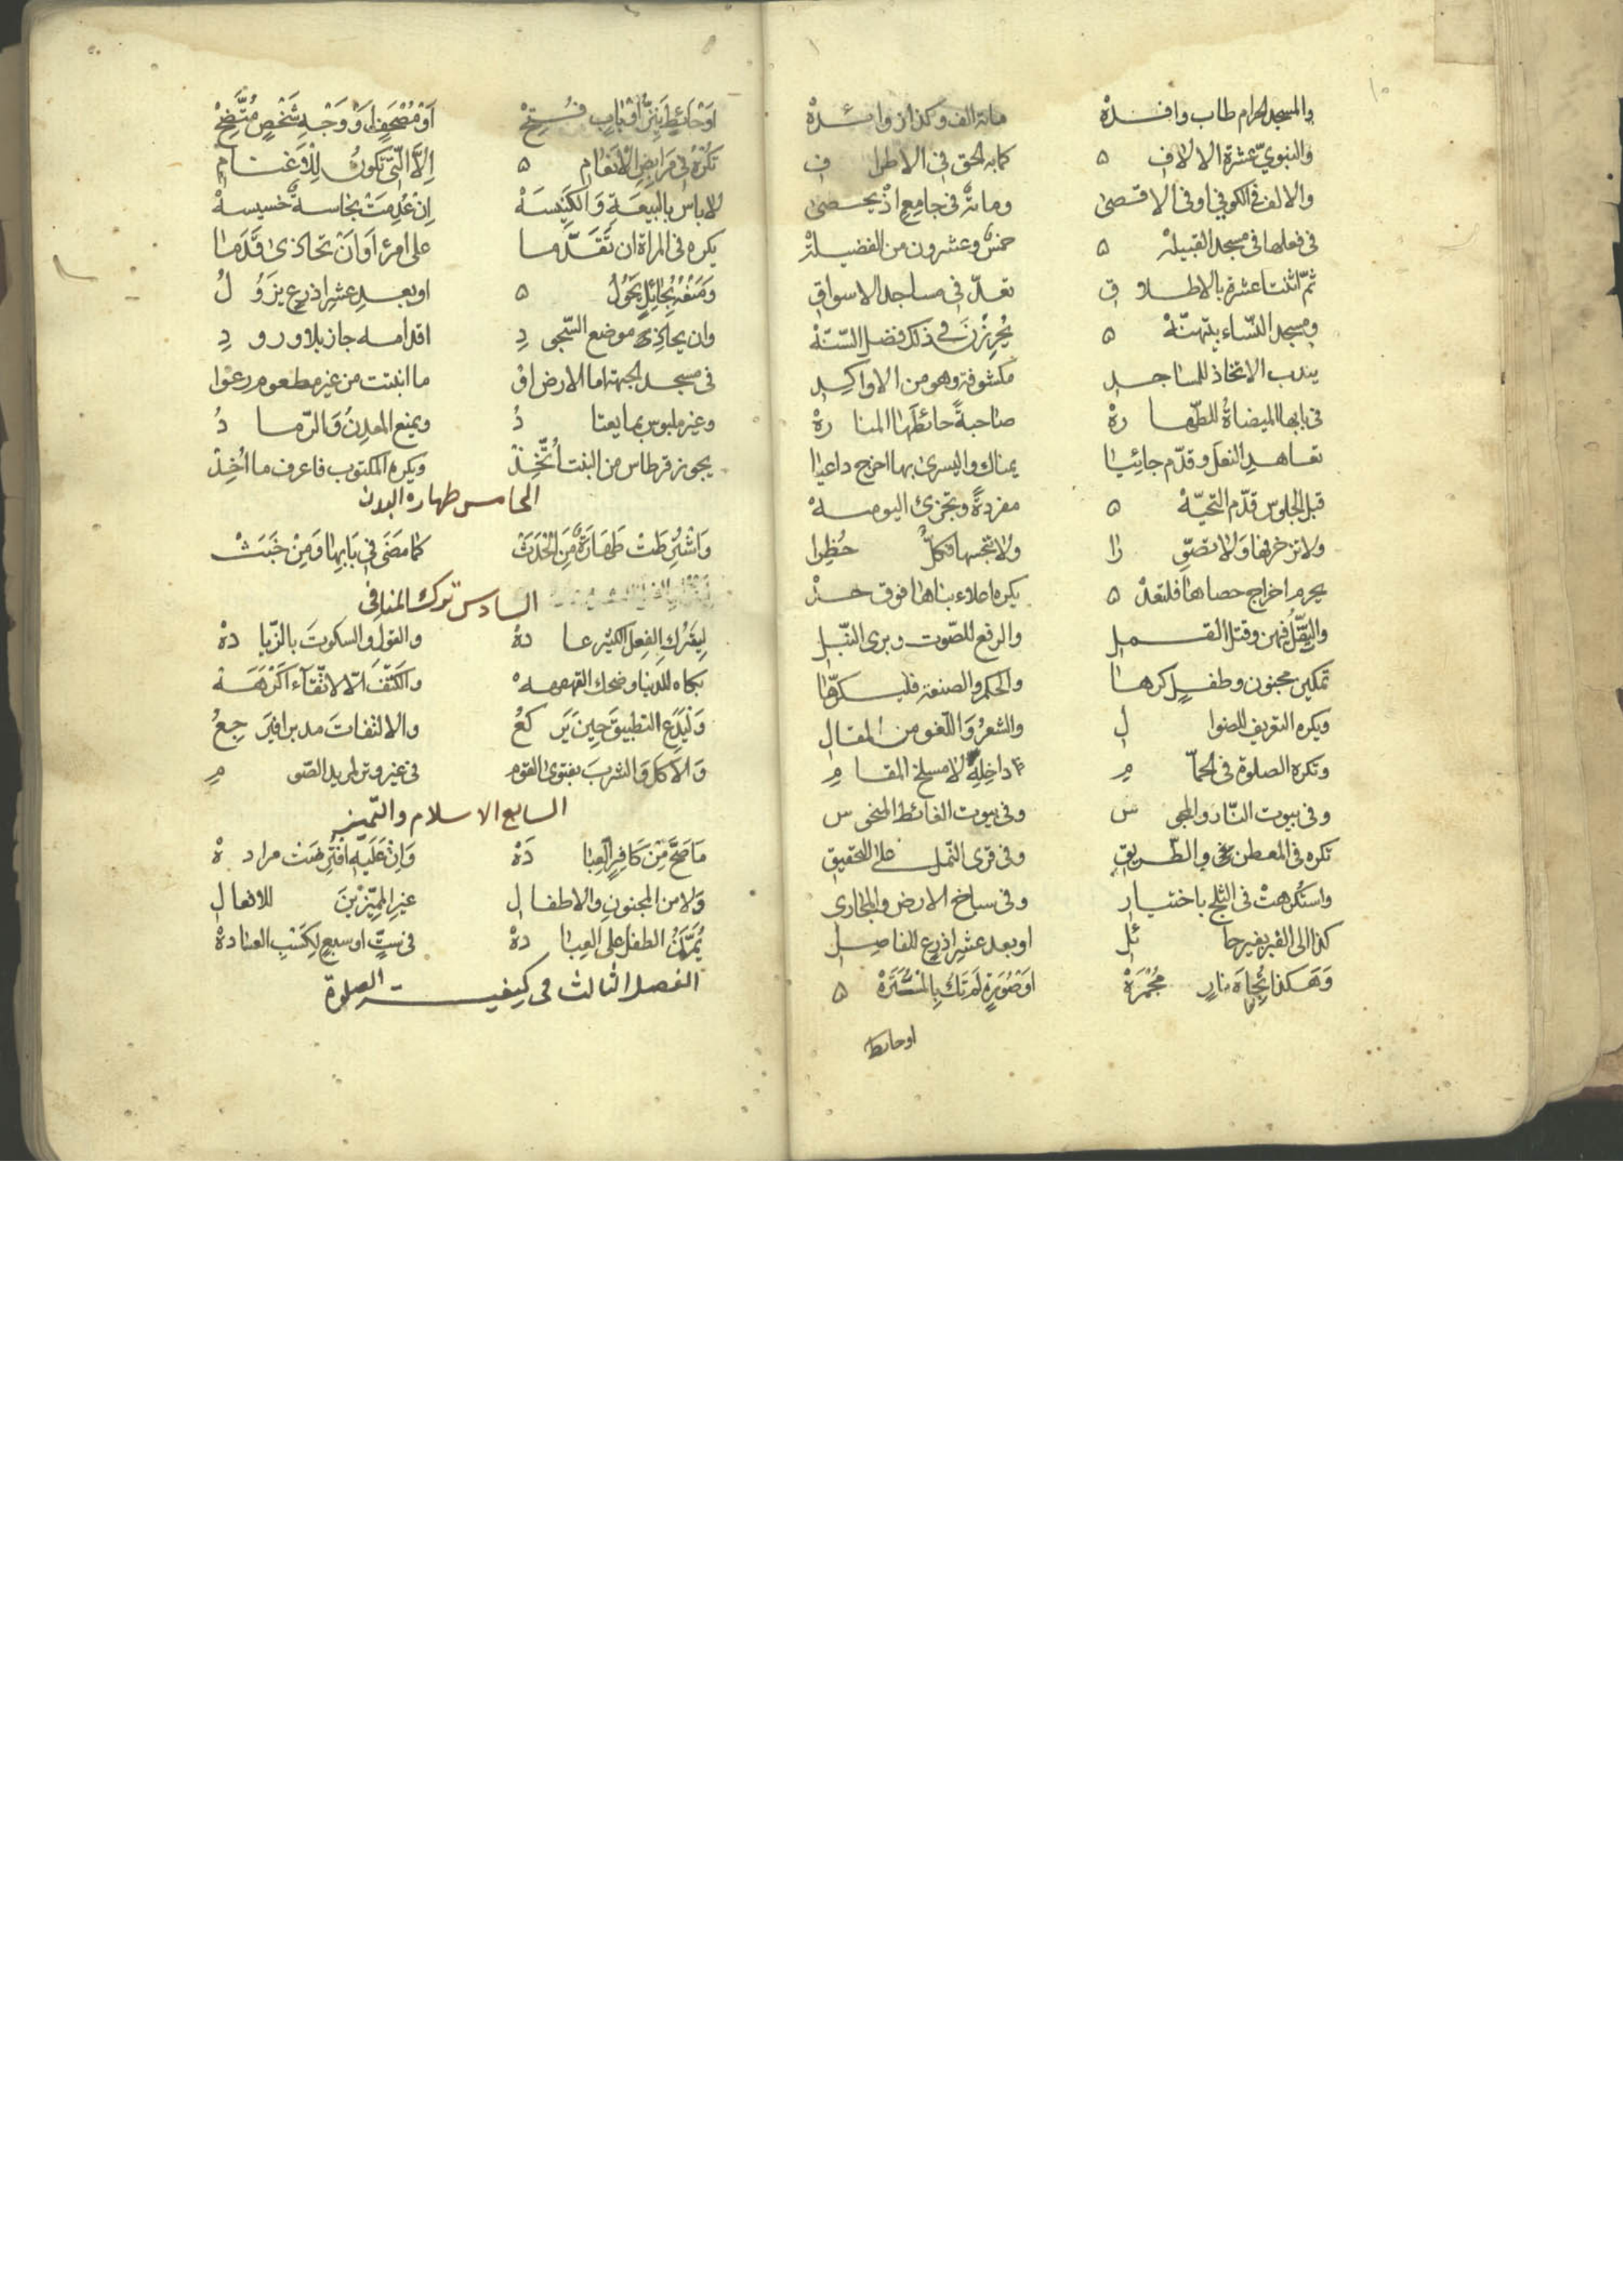 والمسجد الحرام طاب وافدة مائة الف وكذا زوائدة
والنبوي عشرة الالاف كما به الحق في الاطراف
والالف في الكوفي او في الاقصى ومائة في جامع اذ يحصى
في فعلها في مسجد القبيلة خمس وعشرون من الفضيلة
ثم اثنتا عشرة بالاطلاق تعدل في مساجد الاسواق
ومسجد النساء بيتهنه يحرزن في ذلك فضل السنه
يندب الاتخاذ للمساجد مكشوفة وهو من الاواكد
في بابها الميضاة للطهارة صاحبة حائطها المنارة
تعاهد النعل وقدم جائيا يمناك واليسرى بها اخرج داعيا
قبل الجلوس قدم التحية مفردة وتجزئ اليومية
ولا تزخرفها ولا تصورا ولا تنجسها فكل حظرا
يحرم اخراج حصاها فلتعد يكره اعلاء بناها فوق حد
والبصق فيهن وقتل القمل والرفع للصوت وبرى النبل
تمكين مجنون وطفل كرها والحكم والصنعة فليكرها
ويكره التعريف للضوال والشعر واللغو من المقال
وتكره الصلوة في الحمام داخله لا مسلخ المقام
وفي بيوت النار والمجوس وفي بيوت الغائط المنحوس
تكره في المعطن والطريق وفي قرى النمل على التحقيق
واستكرهت في الثلج باختيار وفي سباخ الارض والمجاري
كذا الى القبر بغير حائل او بعد عشر اذرع للفاصل
وهكذا تجاه نار مجمرة او صورة لم تك بالمسترة
او حائط
او حائط ينز او باب فتح او مصحف او وجه شخص متضح
تكره في مرابض الانعام الا التي تكون للاغنام
لا باس بالبيعة والكنيسة ان عدمت نجاسة خسيسة
يكره في المراة ان تقدما على امرئ او ان تحاذى قدما
ومنعه بحائل يحول او بعد عشر اذرع يزول
وان يحاذى موضع السجود اقدامه جاز بلا ورود
في مسجد الجبهة اما الارض او ما انبتت من غير مطعوم رعوا
وغير ملبوس بما يعتاد ويمنع المعدن والرماد
يجوز قرطاس من النبت اتخذ ويكره المكتوب فاعرف ما اخذ
الخامس طهارة البدن
واشترطت طهارة من الحدث كما مضى في بابها ومن خبث
السادس ترك المنافي
ليترك الفعل الكثير عادة والقول والسكوت بالزيادة
بكاه للدنيا وضحك القهقهه والكتف الا لاتقاء اكرهه
وليدع التطبيق حين يركع والالتفات مدبرا فيرجع
والاكل والشرب بفتوى القوم في غير وتر لمريد الصوم
السابع الاسلام والتميز
ما صح من كافر العبادة وان عليه افترضت مرادة
ولا من المجنون والاطفال غير المميزين للافعال
يمرن الطفل على العبادة في ست او سبع لكسب العادة
الفصل الثالث في كيفيت الصلوة